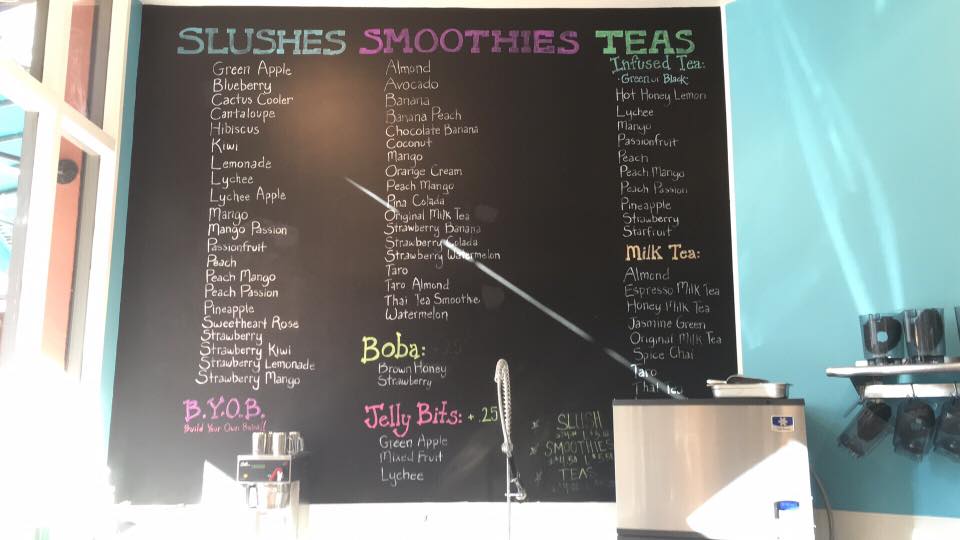 SLUSHES
Green Apple
Blueberry
Cactus Cooler
Cantaloupe
Hibiscus
Kiwi
Lemonade
Lychee
Lychee Apple
Mango
Mango Passion
Passionfruit
Peach
Peach Mango
Peach Passion
Pineapple
Sweetheart Rose
Strawberry
Strawberry Kiwi
Strawberry Lemonade
Strawberry Mango
B.Y.O.B.
Build Your Own Boba!!
SMOOTHIES
Almond
Avocado
Banana
Banana Peach
Chocolate Banana
Coconut
Mango
Orange Cream
Peach Mango
Pina Colada
Original Milk Tea
Strawberry Banana
Strawberry Colada
Strawberry Watermelon
Taro
Taro Almond
Thai Tea Smoothe
Watermelon
Boba:
Brown Honey
Strawberry
Jelly Bits: +.25
Green Apple
Mixed Fruit
Lychee
TEAS
Infused Tea:
·Green or Black·
Hot Honey Lemon
Lychee
Mango
Passionfruit
Peach
Peach Mango
Peach Passion
Pineapple
Strawberry
Starfruit
Milk Tea:
Almond
Espresso Milk Tea
Honey Milk Tea
Jasmine Green
Original Milk Tea
Spice Chai
Taro
Thai Tea
SLUSH
SMOOTHIES
TEAS